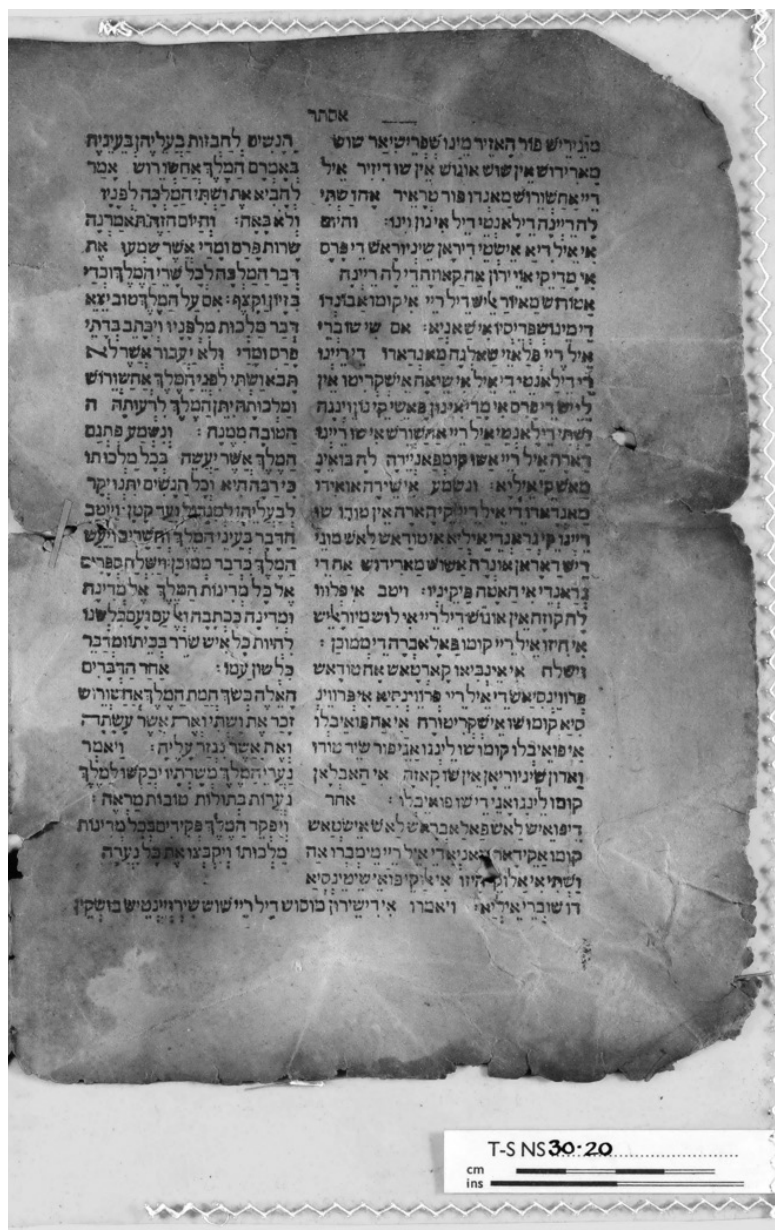 אסתר
מוגירש פור האזיר מינושפריסיאר שוש
מארידוש אין שוש אוגוש אין שו דיזיר איל
ריי אחשורוש מאנדו פור טראיר אה ושתי
לה ריינה דילאנטי דיל אי נון וינו: והיום
אי איל דיא אישטי דיראן שיניוראש די פרס
אי מדי קי אויירון אה קאוזה די לה ריינה
אטודוש מאיוראליש דיל ריי אי קומו אבונדו
די מינושפריסיו אי שאניא: אם שי שוברי
איל ריי פלאזי שאלגה מאנדאדו די ריינו
די דילאנטי די איל אי שיאה אישקריטו אין
לייש די פרס אי מדי אי נון פאשי קי נון וינגה
ושתי דילאנטי איל ריי אחשורש אי שו ריינו
דארה איל ריי אשו קומפאניירה לה בואינה
מאש קי איליא: ונשמע אי שירה אואידו
מאנדאדו די איל ריי קי הארה אין טודו שו
ריינו קי גראנדי איליא אי טודאש לאש מוגי
ריש דאראן אונרה אשוש מארידוש אה די
גראנדי אי האטה פיקיניו: ויטב אי פלוגו
לה קוזה אין אוגוש דיל ריי אי לוש מיוראליש
אי היזו איל ריי קומו פאלאברה די ממוכן:
וישלח אי אינביאו קארטאש אה טודאש
פרווינסיאש די איל ריי פרווינסיא אי פרווינ
סיא קומו שו אישקריטורה אי אה פואיבלו
אי פואיבלו קומו שו לינגואגי פור שיר טודו
וארון שיניוריאן אין שו קאזה אי האבלאן
קומו לינגואגי די שו פואיבלו: אחר
דיפואיש לאש פאלאבראש לאש אישטאש
ושתי אי אלו קי היזו אי אלו קי פואי שינטינסיא
דו שוברי איליא: ויאמרו אי דישירון מוסוש דיל ריי שוש שירויינטיש בושקין
הנשים להבזות בעליהן בעיניהן
באמרם המלך אחשורוש אמר
להביא את ושתי המלכה לפניו
ולא באה: והיום הזה תאמרנה
שרות פרס ומדי אשר שמעו את
דבר המלכה לכל שרי המלך וכדי
בזיון וקצף: אם על המלך טוב יצא
דבר מלכות מלפניו ויכתב בדתי
פרס ומדי ולא יעבור אשר לא
תבוא ושתי לפני המלך אחשורוש
ומלכותה יתן המלך לרעותה ה
הטובה ממנה: ונשמע פתגם
המלך אשר יעשה בכל מלכותו
כי רבה היא וכל הנשים יתנו יקר
לבעליהן למגדול ועד קטן: וייטב
הדבר בעיני המלך והשרים ויעש
המלך כדבר ממוכן: וישלח ספרים
אל כל מדינות המלך אל מדינה
ומדינה ככתבה ואל עם ועם כלשנו
להיות כל איש שרר בביתו ומדבר
כלשון עמו: אחר הדברים
האלה כשך חמת המלך אחשורוש
זכר את ושתי ואת אשר עשתה
ואת אשר נגזר עליה: ויאמרו
נערי המלך משרתיו יבקשו למלך
נערות בתולות טובות מראה:
ויפקד המלך פקידים בכל מדינות
מלכותו ויקבצו את כל נערה
T-S NS 30·20
cm
ins